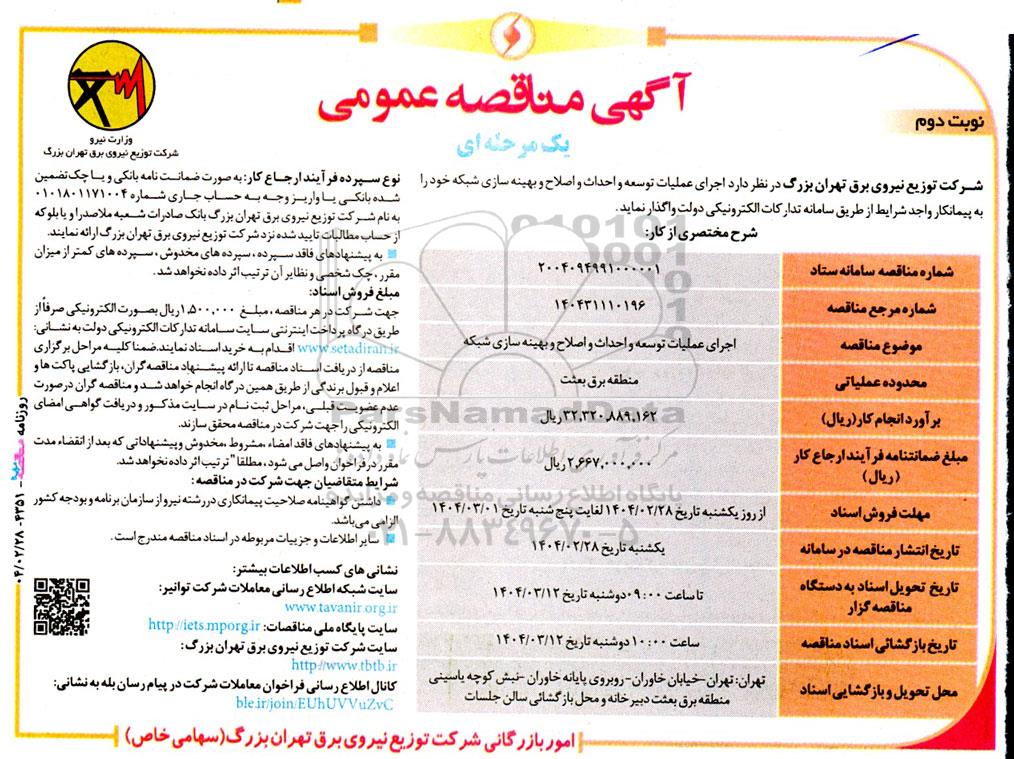 آگهی مناقصه عمومی
یک مرحله ای
نوبت دوم
وزارت نیرو
شرکت توزیع نیروی برق تهران بزرگ
شرکت توزیع نیروی برق تهران بزرگ در نظر دارد اجرای عملیات توسعه و احداث و اصلاح و بهینه سازی شبکه خود را
به پیمانکار واجد شرایط از طریق سامانه تدارکات الکترونیکی دولت واگذار نماید.
شرح مختصری از کار:
شماره مناقصه سامانه ستاد ۲۰۰۴۰۹۴۹۹۱۰۰۰۰۰۱
شماره مرجع مناقصه ۱۴۰۴۳۱۱۱۰۱۹۶
موضوع مناقصه اجرای عملیات توسعه و احداث و اصلاح و بهینه سازی شبکه
محدوده عملیاتی منطقه برق بعثت
برآورد انجام کار (ریال) ۳۲،۳۲۰،۸۸۹،۱۶۲ ریال
مبلغ ضمانتنامه فرآیند ارجاع کار
(ریال) ۲،۶۶۷،۰۰۰،۰۰۰ ریال
مهلت فروش اسناد از روز یکشنبه تاریخ ۱۴۰۴/۰۲/۲۸ لغایت پنج شنبه تاریخ ۱۴۰۴/۰۳/۰۱
تاریخ انتشار مناقصه در سامانه یکشنبه تاریخ ۱۴۰۴/۰۲/۲۸
تاریخ تحویل اسناد به دستگاه
مناقصه گزار تا ساعت ۰۹:۰۰ دوشنبه تاریخ ۱۴۰۴/۰۳/۱۲
تاریخ بازگشائی اسناد مناقصه ساعت ۱۰:۰۰ دوشنبه تاریخ ۱۴۰۴/۰۳/۱۲
محل تحویل و بازگشایی اسناد تهران: تهران-خیابان خاوران- روبروی پایانه خاوران -نبش کوچه یاسینی
منطقه برق بعثت دبیرخانه و محل بازگشائی سالن جلسات
نوع سپرده فرآیند ارجاع کار: به صورت ضمانت نامه بانکی و یا چک تضمین
شده بانکی یا واریز وجه به حساب جاری شماره ۰۱۰۱۸۰۱۱۷۱۰۰۴
به نام شرکت توزیع نیروی برق تهران بزرگ بانک صادرات شعبه ملاصدرا و یا بلوکه
از حساب مطالبات تایید شده نزد شرکت توزیع نیروی برق تهران بزرگ ارائه نمایند.
به پیشنهادهای فاقد سپرده، سپرده های مخدوش، سپرده های کمتر از میزان
مقرر، چک شخصی و نظایر آن ترتیب اثر داده نخواهد شد.
مبلغ فروش اسناد:
جهت شرکت در هر مناقصه، مبلغ ۱،۵۰۰،۰۰۰ ریال بصورت الکترونیکی صرفاً از
طریق درگاه پرداخت اینترنتی سایت سامانه تدارکات الکترونیکی دولت به نشانی:
www.setadiran.ir اقدام به خرید اسناد نمایند. ضمنا کلیه مراحل برگزاری
مناقصه از دریافت اسناد مناقصه تا ارائه پیشنهاد مناقصه گران، بازگشایی پاکت ها و
اعلام و قبول برندگی از طریق همین درگاه انجام خواهد شد و مناقصه گران در صورت
عدم عضویت قبلی، مراحل ثبت نام در سایت مذکور و دریافت گواهی امضای
الکترونیکی را جهت شرکت در مناقصه محقق سازند.
به پیشنهادهای فاقد امضاء، مشروط، مخدوش و پیشنهاداتی که بعد از انقضاء مدت
مقرر در فراخوان واصل می شود، مطلقا" ترتیب اثر داده نخواهد شد.
شرایط متقاضیان جهت شرکت در مناقصه:
داشتن گواهینامه صلاحیت پیمانکاری در رشته نیرو از سازمان برنامه و بودجه کشور
الزامی می باشد.
سایر اطلاعات و جزییات مربوطه در اسناد مناقصه مندرج است.
نشانی های کسب اطلاعات بیشتر:
سایت شبکه اطلاع رسانی معاملات شرکت توانیر:
www.tavanir.org.ir
سایت پایگاه ملی مناقصات: http://iets.mporg.ir
سایت شرکت توزیع نیروی برق تهران بزرگ:
http://www.tbtb.ir
کانال اطلاع رسانی فراخوان معاملات شرکت در پیام رسان بله به نشانی:
ble.ir/join/EUhUVVuZvC
امور بازرگانی شرکت توزیع نیروی برق تهران بزرگ (سهامی خاص)
روزنامه مناقصه مزایده - ۴۳۵۱ - ۰۴/۰۲/۲۸
ParsNamadData
پایگاه اطلاع رسانی مناقصه و مزایده
۰۲۱-۸۸۳۴۹۶۷۰-۵